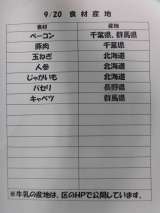 9/20 食材産地
食材 産地
ベーコン 千葉県、群馬県
豚肉 千葉県
玉ねぎ 北海道
人参 北海道
じゃがいも 北海道
パセリ 長野県
キャベツ 群馬県
※牛乳の産地は、区のHPで公開しています。